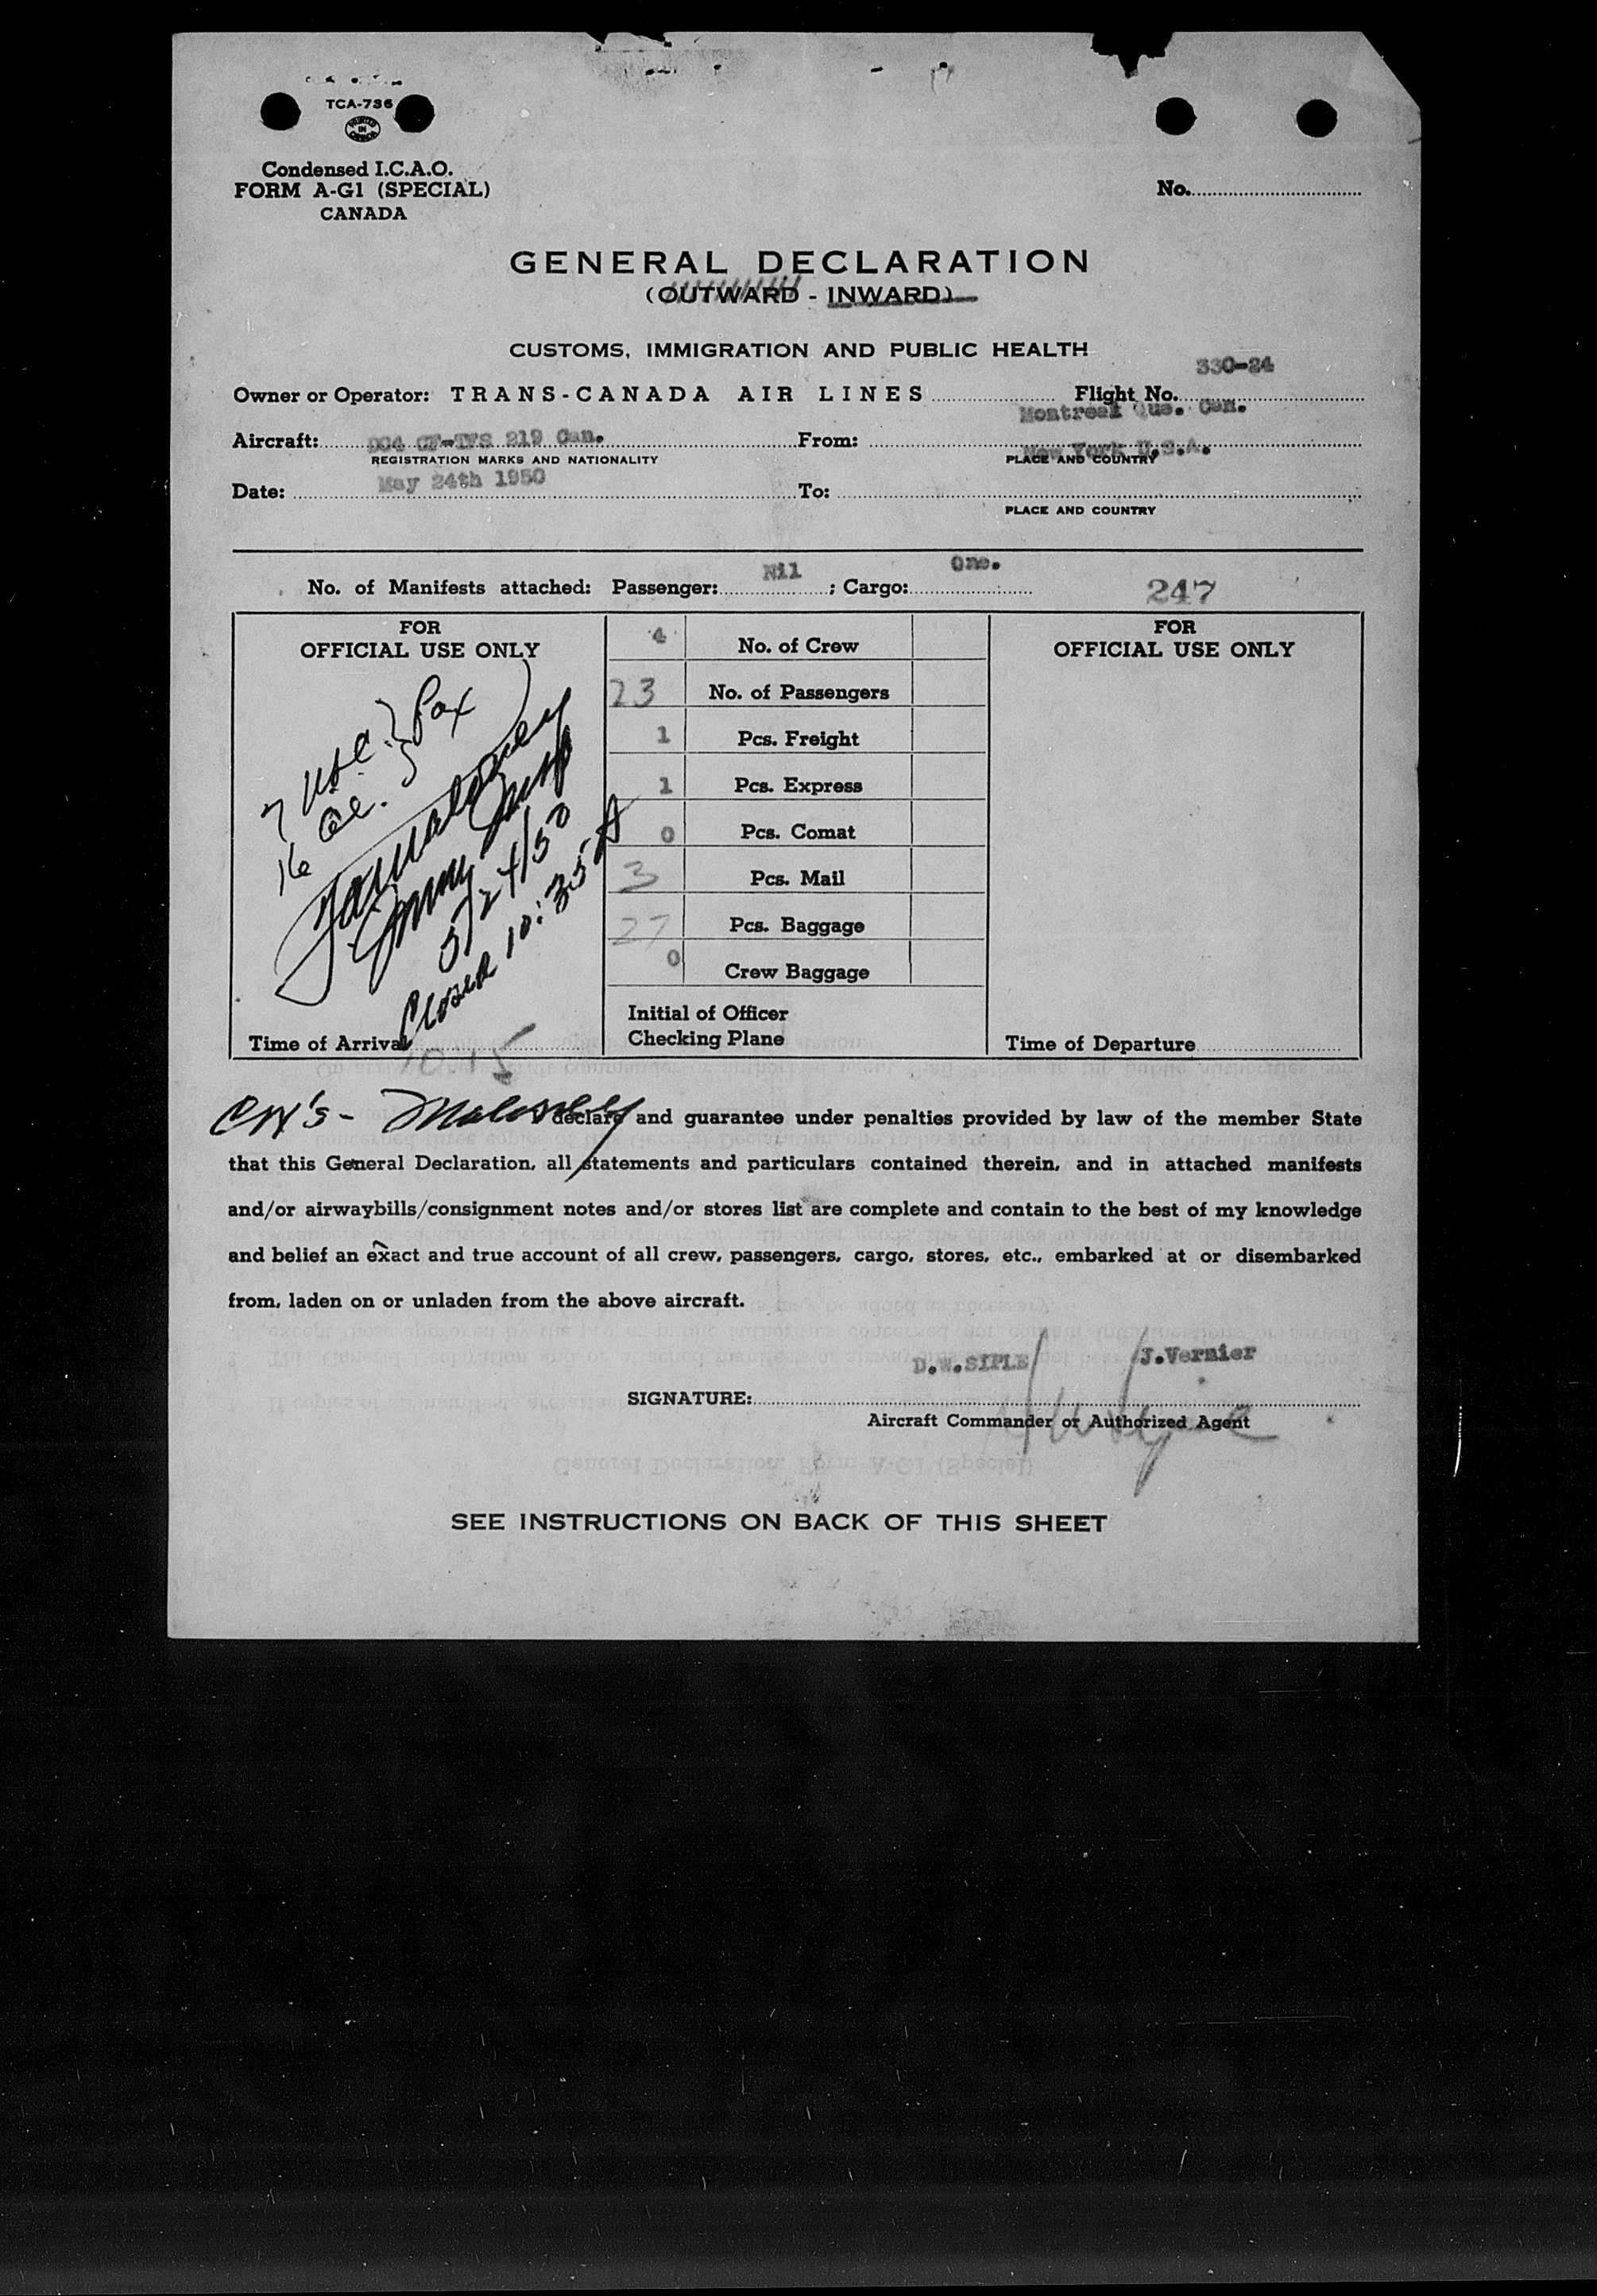 TCA-736
PRINTED IN CANADA
Condensed I.C.A.O.
FORM A-G1 (SPECIAL)
CANADA
No.
GENERAL DECLARATION
(OUTWARD - INWARD)
CUSTOMS, IMMIGRATION AND PUBLIC HEALTH
330-24
Owner or Operator: TRANS-CANADA AIR LINES Flight No.
Montreal Que. Can.
Aircraft: DC4 CF-TFS 219 Can. From:
REGISTRATION MARKS AND NATIONALITY PLACE AND COUNTRY
New York U.S.A.
Date: May 24th 1950 To:
PLACE AND COUNTRY
No. of Manifests attached: Passenger: Nil ; Cargo: One.
247
FOR
OFFICIAL USE ONLY
7 USC. } Pax
16 Al.
5/24/50
Closed 10:35 A
Time of Arrival 1015
4 No. of Crew
23 No. of Passengers
1 Pcs. Freight
1 Pcs. Express
0 Pcs. Comat
3 Pcs. Mail
27 Pcs. Baggage
0 Crew Baggage
Initial of Officer
Checking Plane
FOR
OFFICIAL USE ONLY
Time of Departure
declare and guarantee under penalties provided by law of the member State
that this General Declaration, all statements and particulars contained therein, and in attached manifests
and/or airwaybills/consignment notes and/or stores list are complete and contain to the best of my knowledge
and belief an exact and true account of all crew, passengers, cargo, stores, etc., embarked at or disembarked
from, laden on or unladen from the above aircraft.
D.W.SIPLE / J.Vernier
SIGNATURE:
Aircraft Commander or Authorized Agent
SEE INSTRUCTIONS ON BACK OF THIS SHEET